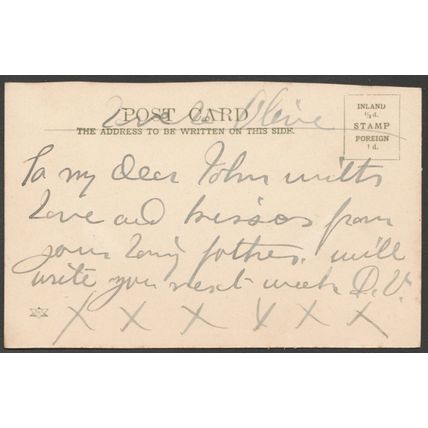 Love to Olive
POST CARD
THE ADDRESS TO BE WRITTEN ON THIS SIDE.
INLAND
½d.
STAMP
FOREIGN
1d.
To my dear John with
love and kisses from
your loving father. will
write you next week D.V.
X X X X X X